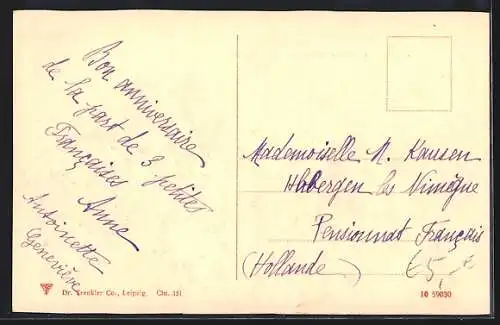 Bon anniversaire
de la part de 3 petites
Françaises Anne
Antoinette
Geneviève
Mademoiselle N. Kausen
Hubergen les Nimègue
Pensionnat Français
(Hollande)
€5,-
Dr. Trenkler Co., Leipzig. Chr. 151
10 59030